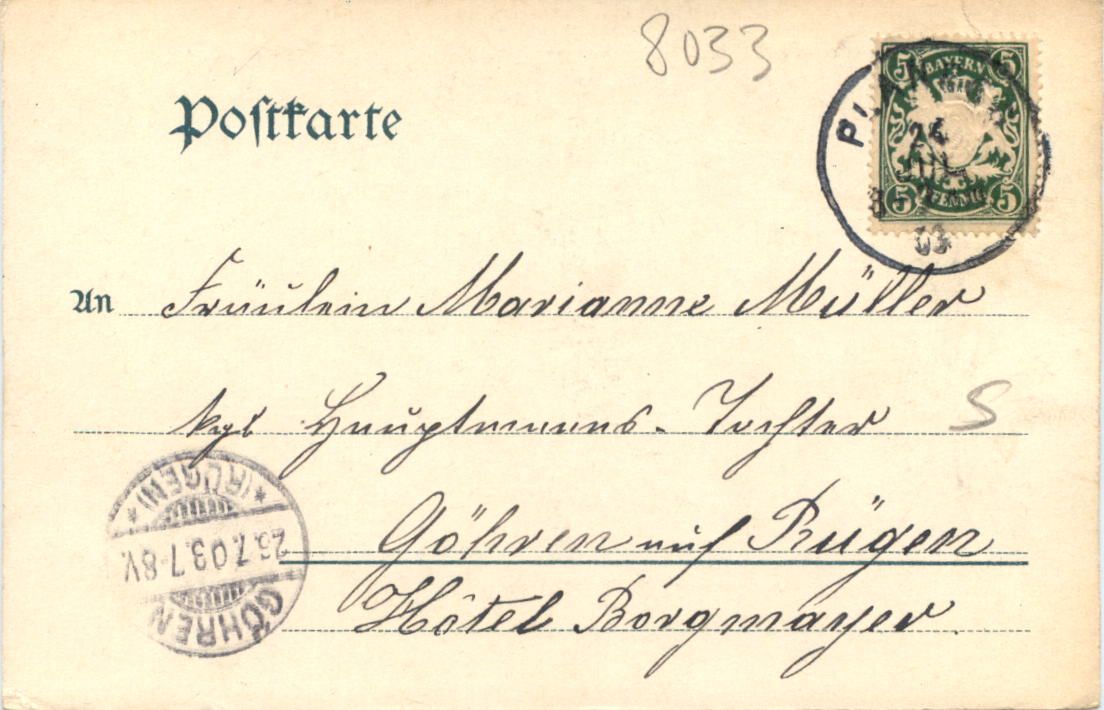 8033
5 BAYERN 5
5 PFENNIG 5
24
JUL
03
Postkarte
An Fräulein Marianne Müller
kgl Hauptmanns-Tochter
S
Göhren auf Rügen
Hôtel Borgmayer.
GÖHREN
*(RÜGEN)*
7-8V.